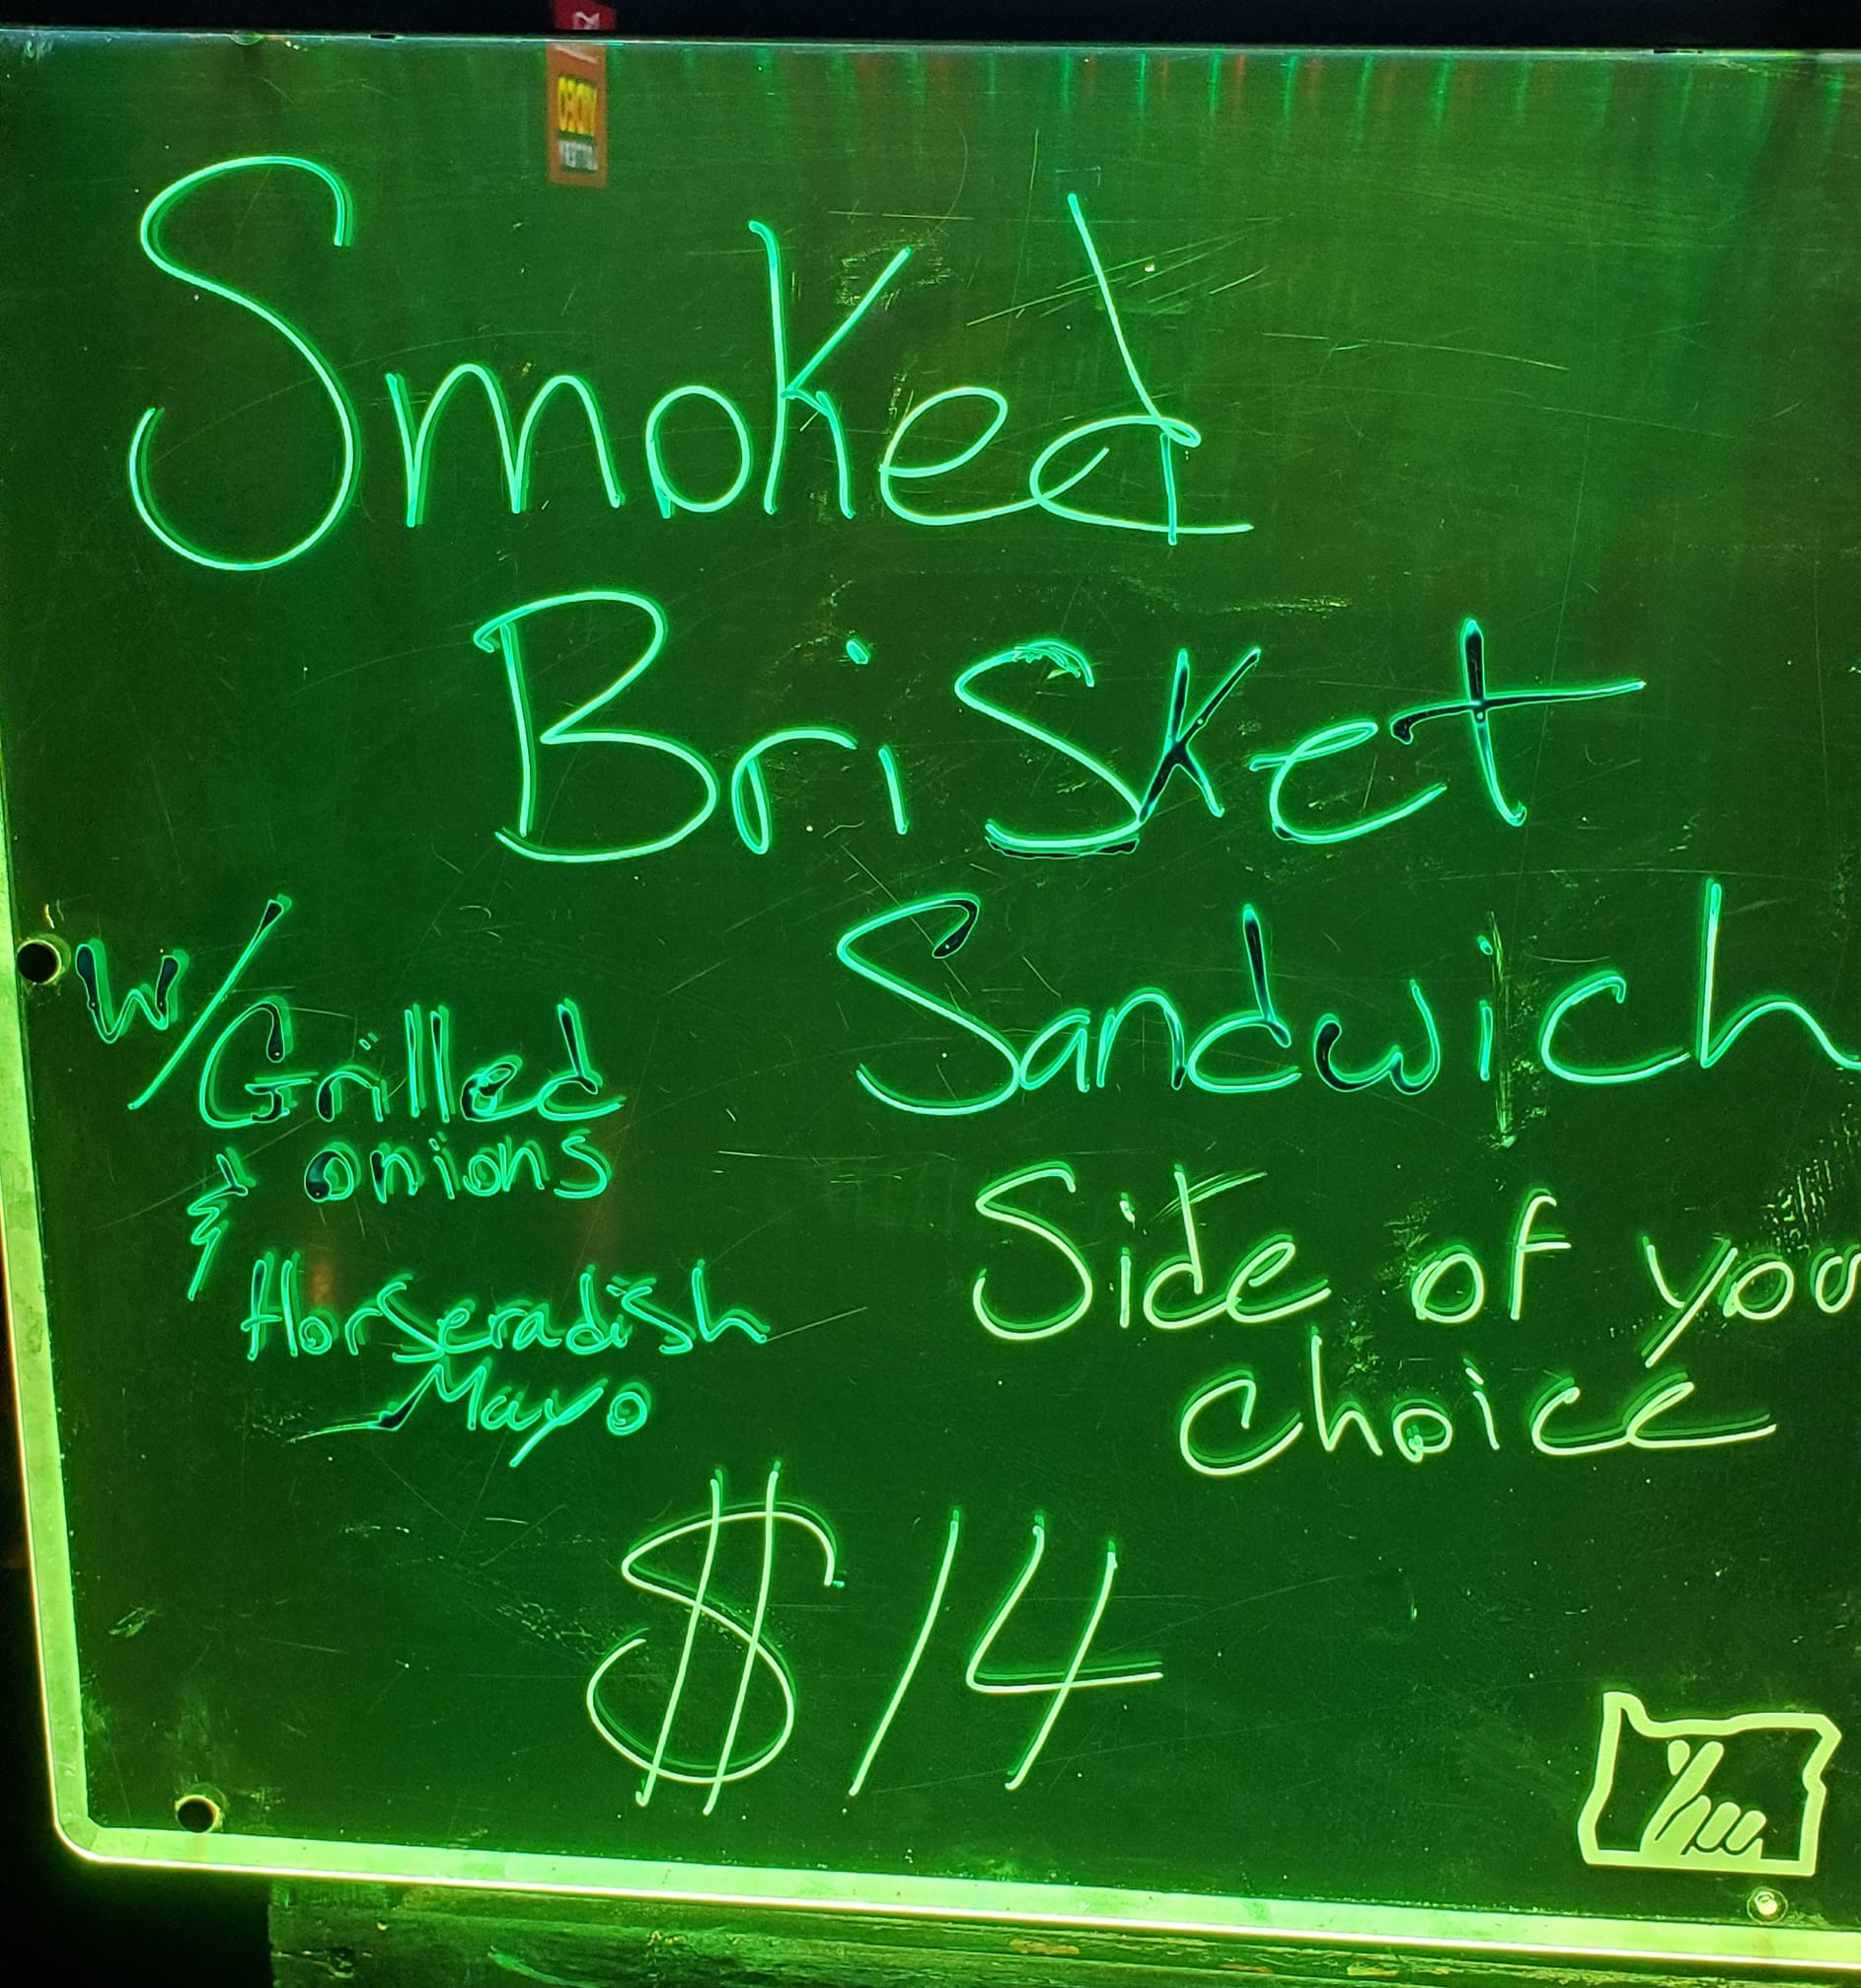 Smoked
Brisket
Sandwich
W/Grilled
onions
&
Horseradish
Mayo
Side of you
choice
$14